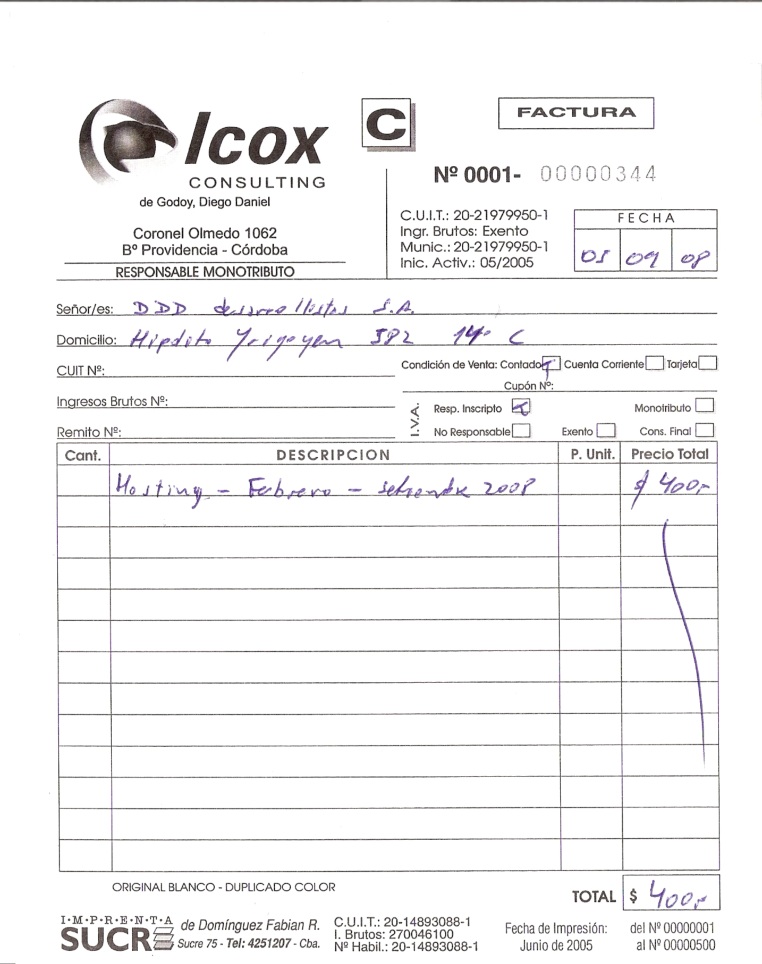 Icox
CONSULTING
de Godoy, Diego Daniel
Coronel Olmedo 1062
Bº Providencia - Córdoba
RESPONSABLE MONOTRIBUTO
C
FACTURA
Nº 0001- 00000344
C.U.I.T.: 20-21979950-1
Ingr. Brutos: Exento
Munic.: 20-21979950-1
Inic. Activ.: 05/2005
FECHA
05 09 08
Señor/es: DDD desarrollistas S.A.
Domicilio: Hipólito Yrigoyen 582 14º C
CUIT Nº:
Condición de Venta: Contado Cuenta Corriente Tarjeta
Cupón Nº:
Ingresos Brutos Nº:
I.V.A.
Resp. Inscripto Monotributo
Remito Nº:
No Responsable Exento Cons. Final
Cant. DESCRIPCION P. Unit. Precio Total
Hosting - Febrero - Setiembre 2008 $ 400,-
ORIGINAL BLANCO - DUPLICADO COLOR
TOTAL $ 400,-
I·M·P·R·E·N·T·A
SUCRE
de Domínguez Fabian R.
Sucre 75 - Tel: 4251207 - Cba.
C.U.I.T.: 20-14893088-1
I. Brutos: 270046100
Nº Habil.: 20-14893088-1
Fecha de Impresión:
Junio de 2005
del Nº 00000001
al Nº 00000500